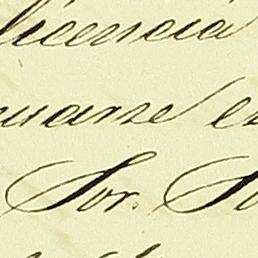 licencia
uarse e
Sor. S